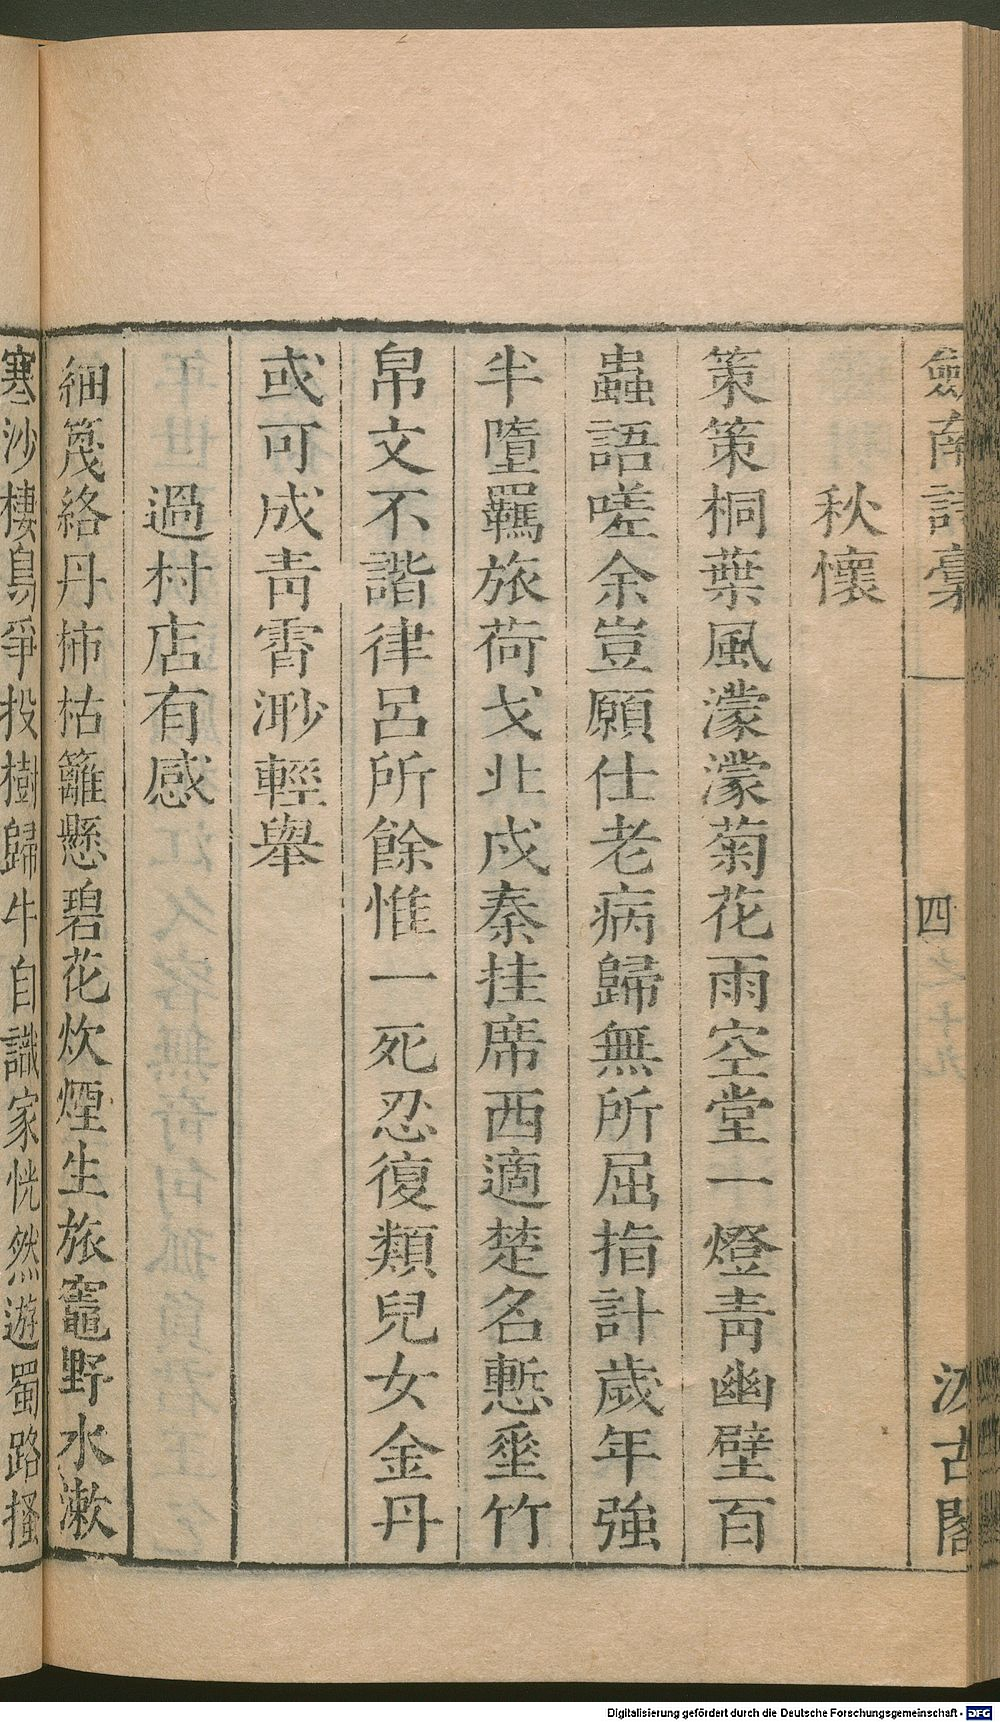 劍南詩稾
四
汲古閣
秋懷
策策桐葉風濛濛菊花雨空堂一燈靑幽壁百
蟲語嗟余豈願仕老病歸無所屈指計歲年強
半墮羈旅荷戈北戍秦挂席西適楚名慙垂竹
帛文不諧律呂所餘惟一死忍復類兒女金丹
或可成靑霄渺輕舉
過村店有感
細篾絡丹柿枯籬懸碧花炊煙生旅竈野水漱
寒沙棲鳥爭投樹歸牛自識家恍然遊蜀路搔
Digitalisierung gefördert durch die Deutsche Forschungsgemeinschaft - DFG